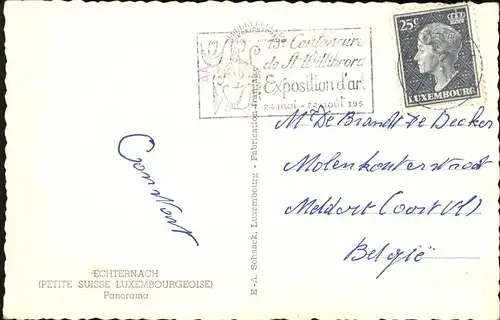 13e Centenaire
de St Willibrord
Exposition d'art
24 mai - 24 août 195
25c
LUXEMBOURG
Mr De Brandt De Becker
Molenkouterstraat
Meldert (Oost Vl)
België
E-A. Schaack, Luxembourg - Fabrication française
ECHTERNACH
(PETITE SUISSE LUXEMBOURGEOISE)
Panorama